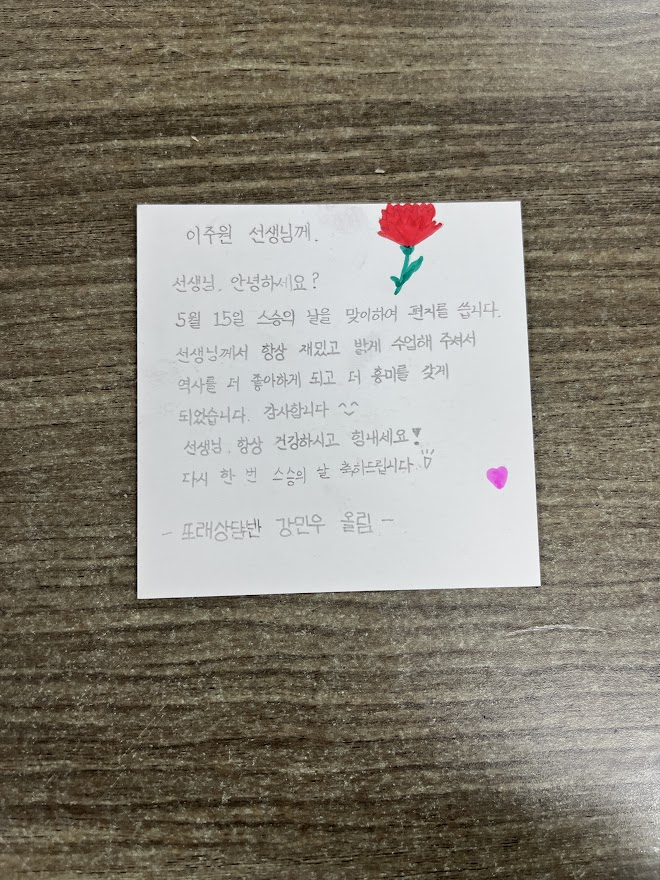 이주원 선생님께.
선생님, 안녕하세요?
5월 15일 스승의 날을 맞이하여 편지를 씁니다.
선생님께서 항상 재밌고 밝게 수업해 주셔서
역사를 더 좋아하게 되고 더 흥미를 갖게
되었습니다. 감사합니다 ^^
선생님, 항상 건강하시고 힘내세요!
다시 한 번 스승의 날 축하드립니다.
- 또래상담반 강민우 올림 -